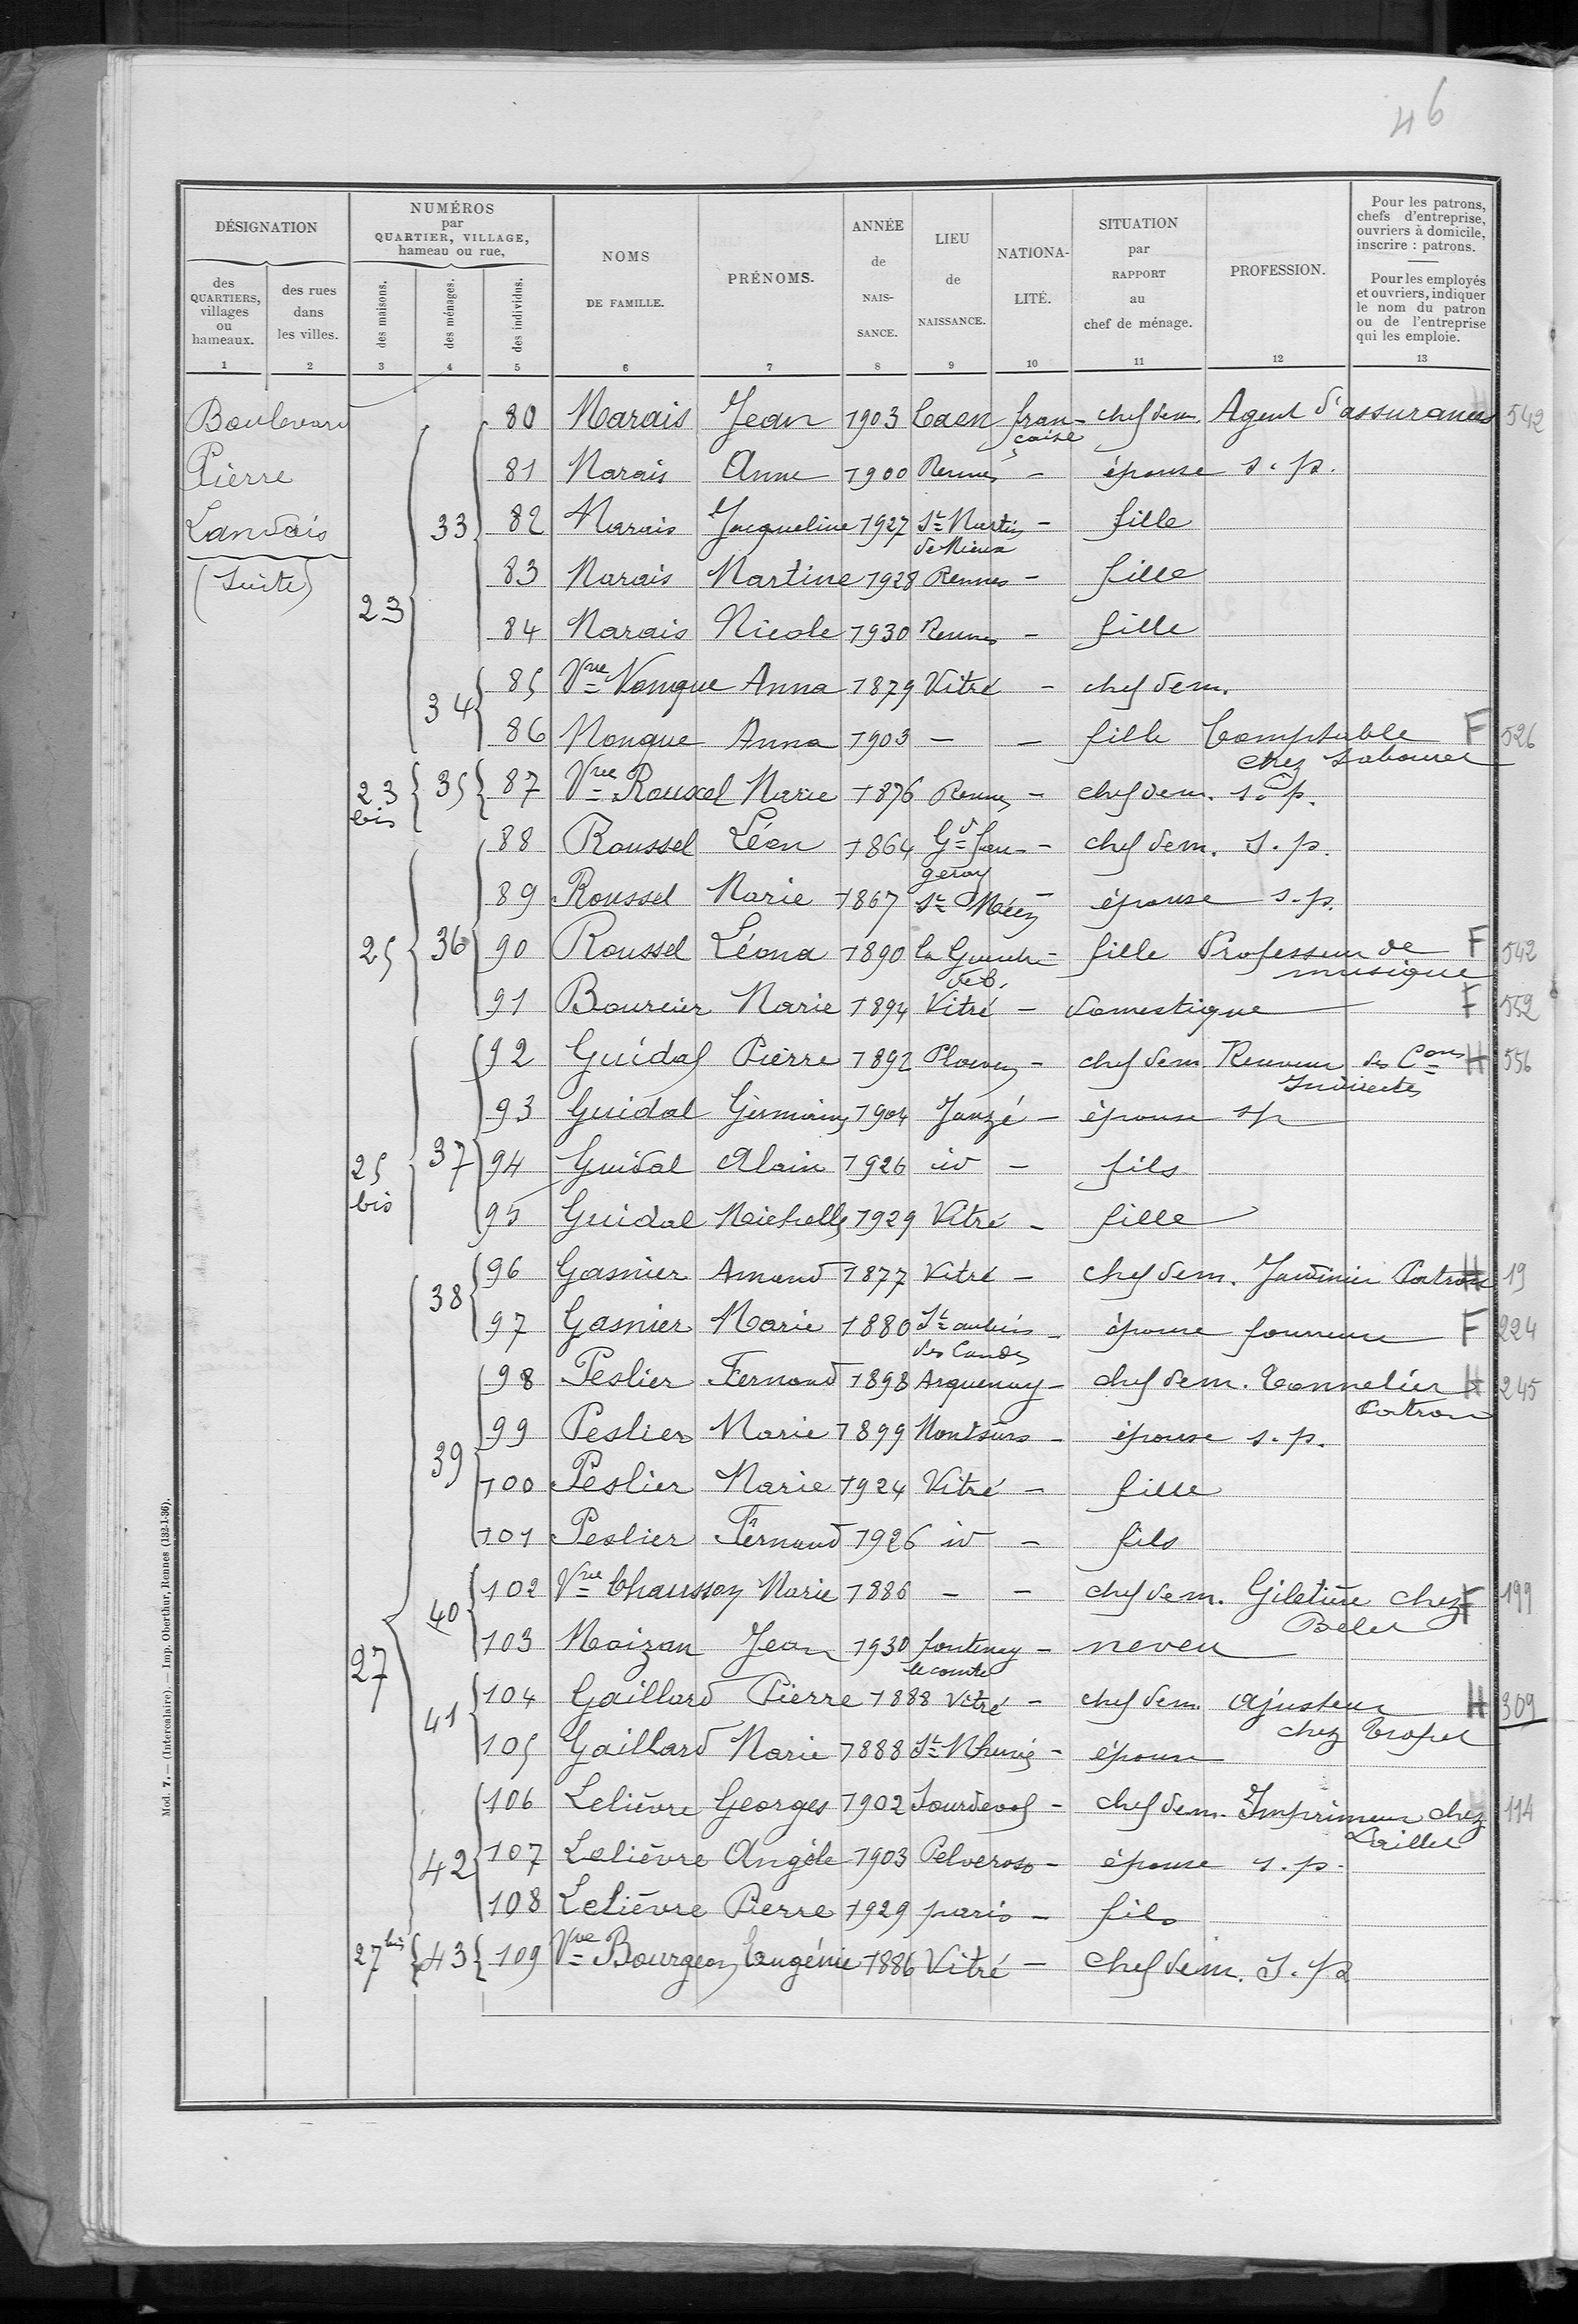 46
DÉSIGNATION
des QUARTIERS, villages ou hameaux.
des rues dans les villes.
NUMÉROS par QUARTIER, VILLAGE, hameau ou rue,
des maisons.
des ménages.
des individus.
NOMS DE FAMILLE.
PRÉNOMS.
ANNÉE de NAIS-SANCE.
LIEU de NAISSANCE.
NATIONA-LITÉ.
SITUATION par RAPPORT au chef de ménage.
PROFESSION.
Pour les patrons, chefs d'entreprise, ouvriers à domicile, inscrire : patrons.
Pour les employés et ouvriers, indiquer le nom du patron ou de l'entreprise qui les emploie.
1 2 3 4 5 6 7 8 9 10 11 12 13
Boulevard
Pierre
Landais
(Suite)
80 Marais Jean 1903 Caen fran-çaise chef de m. Agent d'assurances 542
81 Marais Anne 1900 Rennes - épouse s. p.
33 82 Marais Jacqueline 1927 St Martin - fille
83 Marais Martine 1928 Rennes - fille
23
84 Marais Nicole 1930 Rennes - fille
34 85 Vve Nongue Anna 1879 Vitré - chef de m.
86 Nongue Anna 1903 - - fille Comptable chez F 526
23 bis 35 87 Vve Rouxel Marie 1876 Rennes - chef de m. s. p.
88 Roussel Léon 1864 Gd Fou-geray - chef de m. s. p.
89 Roussel Marie 1867 St Méen - épouse s. p.
25 36 90 Roussel Léona 1890 la Guerche de B. - fille Professeur de musique F 542
91 Bourcier Marie 1894 Vitré - domestique F 552
92 Guidal Pierre 1892 - chef de m Receveur des Cons Indirectes H 556
93 Guidal Germaine 1904 Janzé - épouse sp
25 bis 37 94 Guidal Alain 1926 id - fils
95 Guidal Michelle 1929 Vitré - fille
38 96 Gasnier Amand 1877 Vitré - chef de m. Jardinier Patron H 19
97 Gasnier Marie 1880 St aubin des Landes - épouse F 224
98 Peslier Fernand 1898 Arquenay - chef de m. Tonnelier Patron H 245
39 99 Peslier Marie 1899 Montsûrs - épouse s. p.
100 Peslier Marie 1924 Vitré - fille
101 Peslier Fernand 1926 id - fils
40 102 Vve Chausson Marie 1886 - - chef de m. Giletière chez F 199
103 Maizan Jean 1930 fontenay le comte - neveu
27
41 104 Gaillard Pierre 1888 Vitré - chef de m. ajusteur chez H 309
105 Gaillard Marie 1888 - épouse
106 Lelièvre Georges 1902 Sourdeval - chef de m. Imprimeur chez 114
42 107 Lelièvre Angèle 1903 - épouse s. p.
108 Lelièvre Pierre 1929 paris - fils
27 bis 43 109 Vve Bourgeon Eugénie 1886 Vitré - chef de m. S. P.
Mod. 7. — (Intercalaire). — Imp. Oberthur, Rennes (132-1-36).